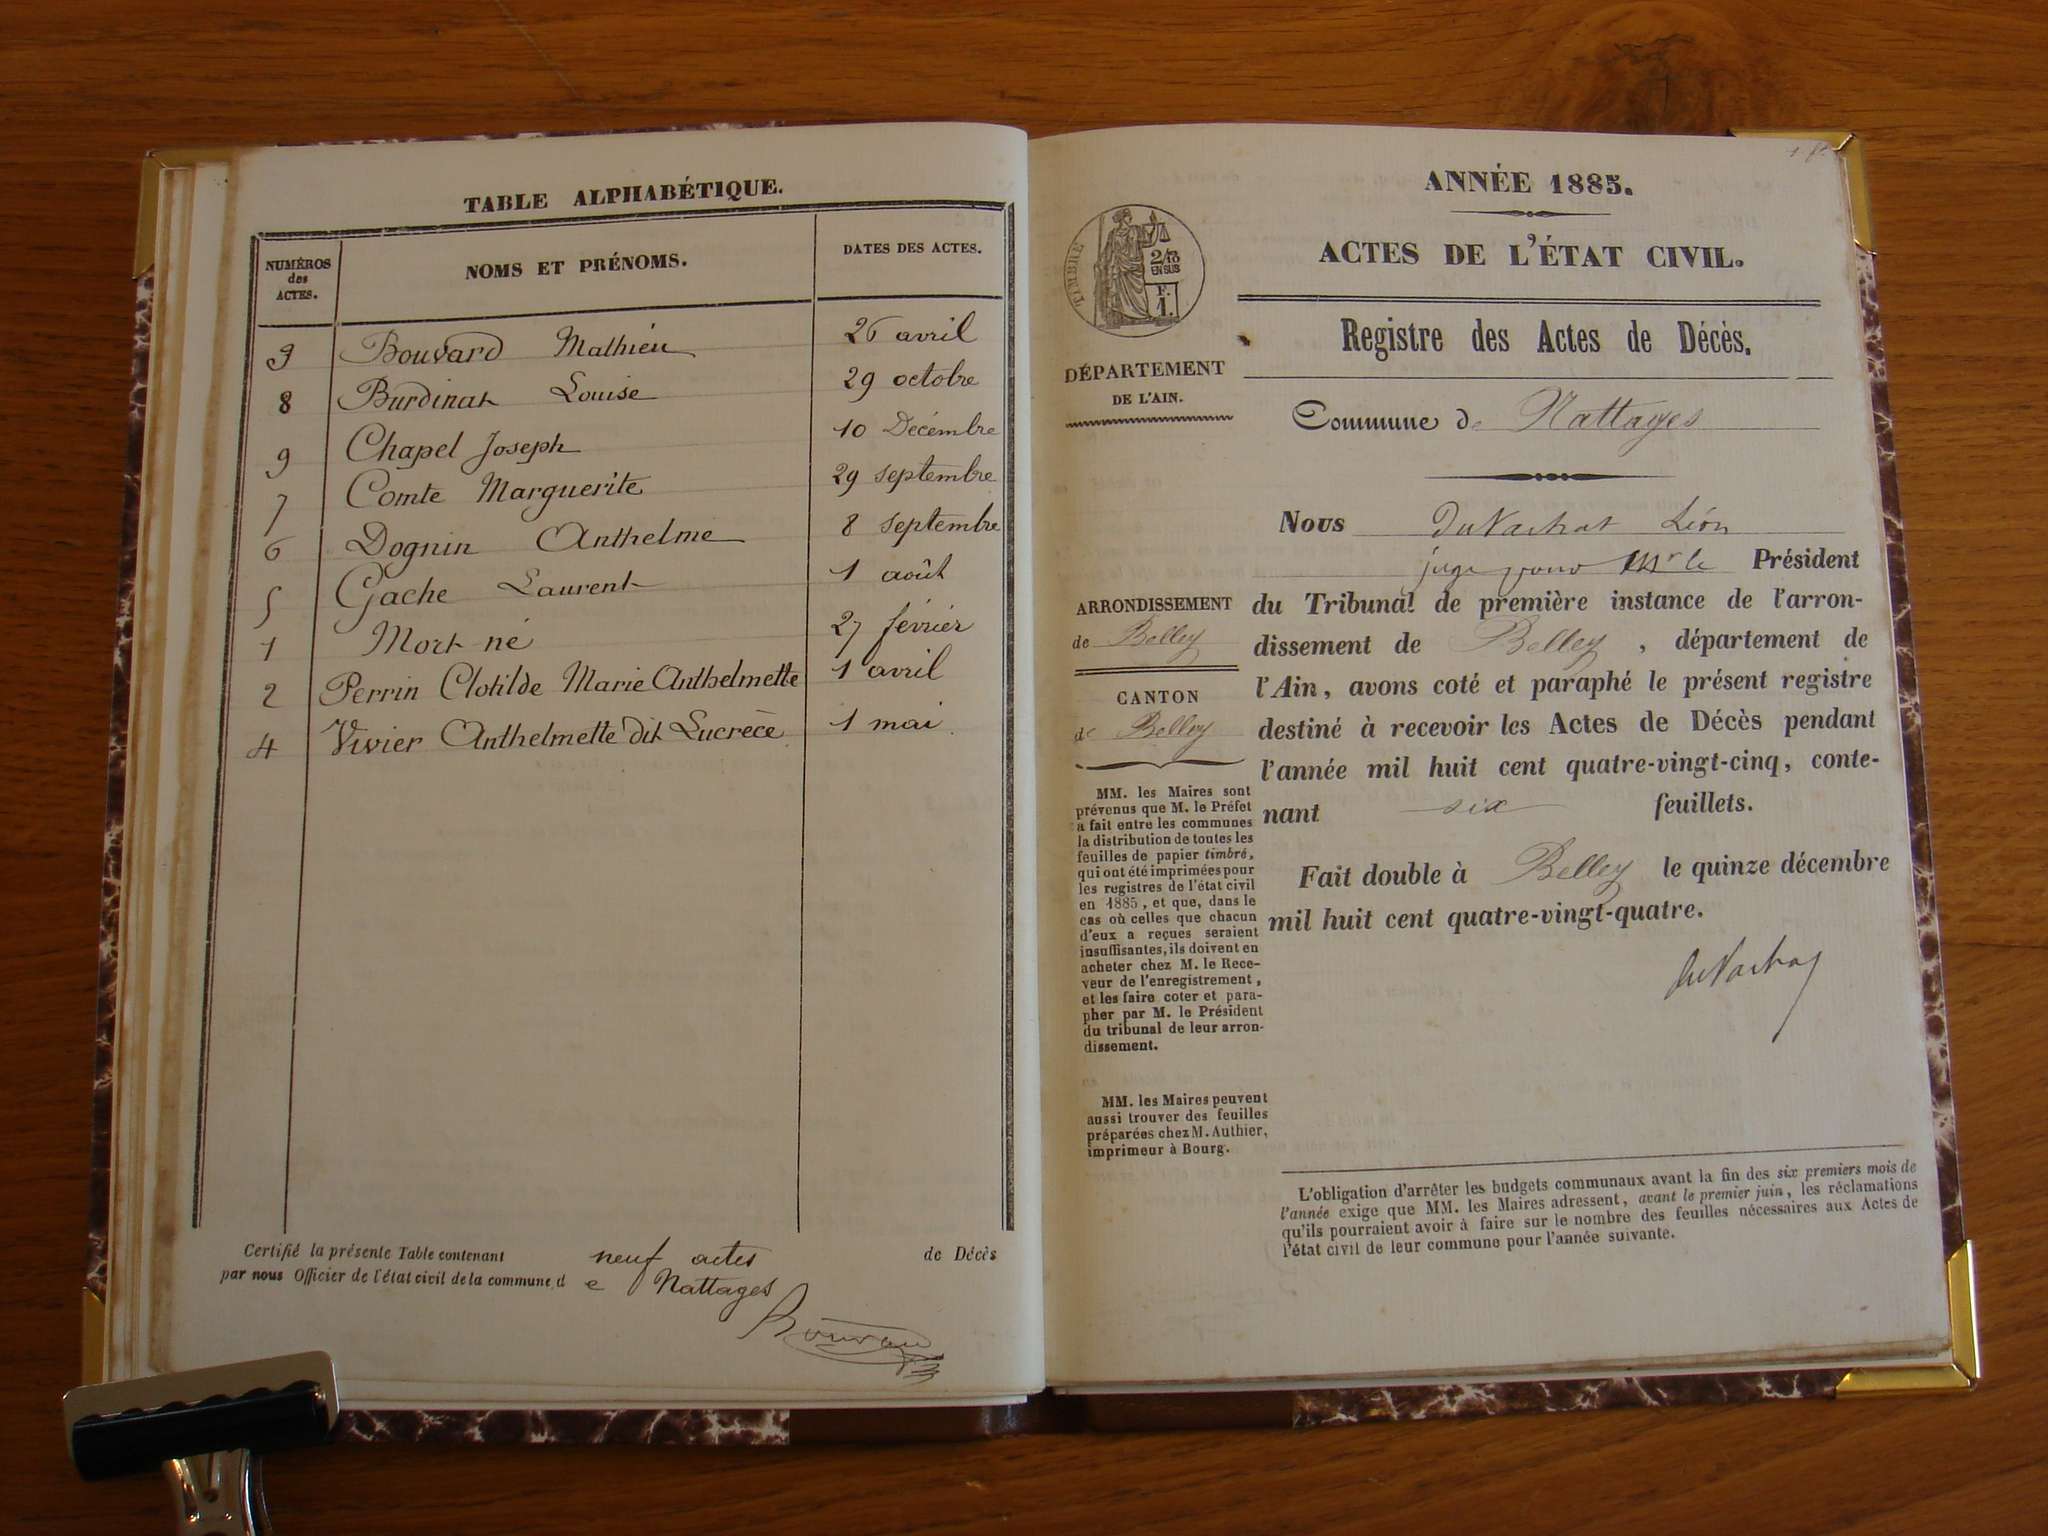 TABLE ALPHABÉTIQUE.
NUMÉROS des ACTES.
NOMS ET PRÉNOMS.
DATES DES ACTES.
3 Bouvard Mathieu 26 avril
8 Burdinat Louise 29 octobre
9 Chapel Joseph 10 Décembre
7 Comte Marguerite 29 septembre
6 Dognin Anthelme 8 septembre
5 Gache Laurent 1 août
1 Mort-né 27 février
2 Perrin Clotilde Marie Anthelmette 1 avril
4 Vivier Anthelmette dit Lucrèce 1 mai
Certifié la présente Table contenant neuf actes de Décès
par nous Officier de l'état civil de la commune d e Nattages
ANNÉE 1885.
ACTES DE L'ÉTAT CIVIL.
TIMBRE
2/10
EN SUS
F.
1.
Registre des Actes de Décès.
DÉPARTEMENT
DE L'AIN.
Commune de Nattages
Nous DuVachat Léon
juge pour Mr le Président
du Tribunal de première instance de l'arron-
dissement de Belley, département de
l'Ain, avons coté et paraphé le présent registre
destiné à recevoir les Actes de Décès pendant
l'année mil huit cent quatre-vingt-cinq, conte-
nant six feuillets.
Fait double à Belley le quinze décembre
mil huit cent quatre-vingt-quatre.
DuVachat
ARRONDISSEMENT
de Belley
CANTON
de Belley
MM. les Maires sont
prévenus que M. le Préfet
a fait entre les communes
la distribution de toutes les
feuilles de papier timbré,
qui ont été imprimées pour
les registres de l'état civil
en 1885, et que, dans le
cas où celles que chacun
d'eux a reçues seraient
insuffisantes, ils doivent en
acheter chez M. le Rece-
veur de l'enregistrement,
et les faire coter et para-
pher par M. le Président
du tribunal de leur arron-
dissement.
MM. les Maires peuvent
aussi trouver des feuilles
préparées chez M. Authier,
imprimeur à Bourg.
L'obligation d'arrêter les budgets communaux avant la fin des six premiers mois de
l'année exige que MM. les Maires adressent, avant le premier juin, les réclamations
qu'ils pourraient avoir à faire sur le nombre des feuilles nécessaires aux Actes de
l'état civil de leur commune pour l'année suivante.